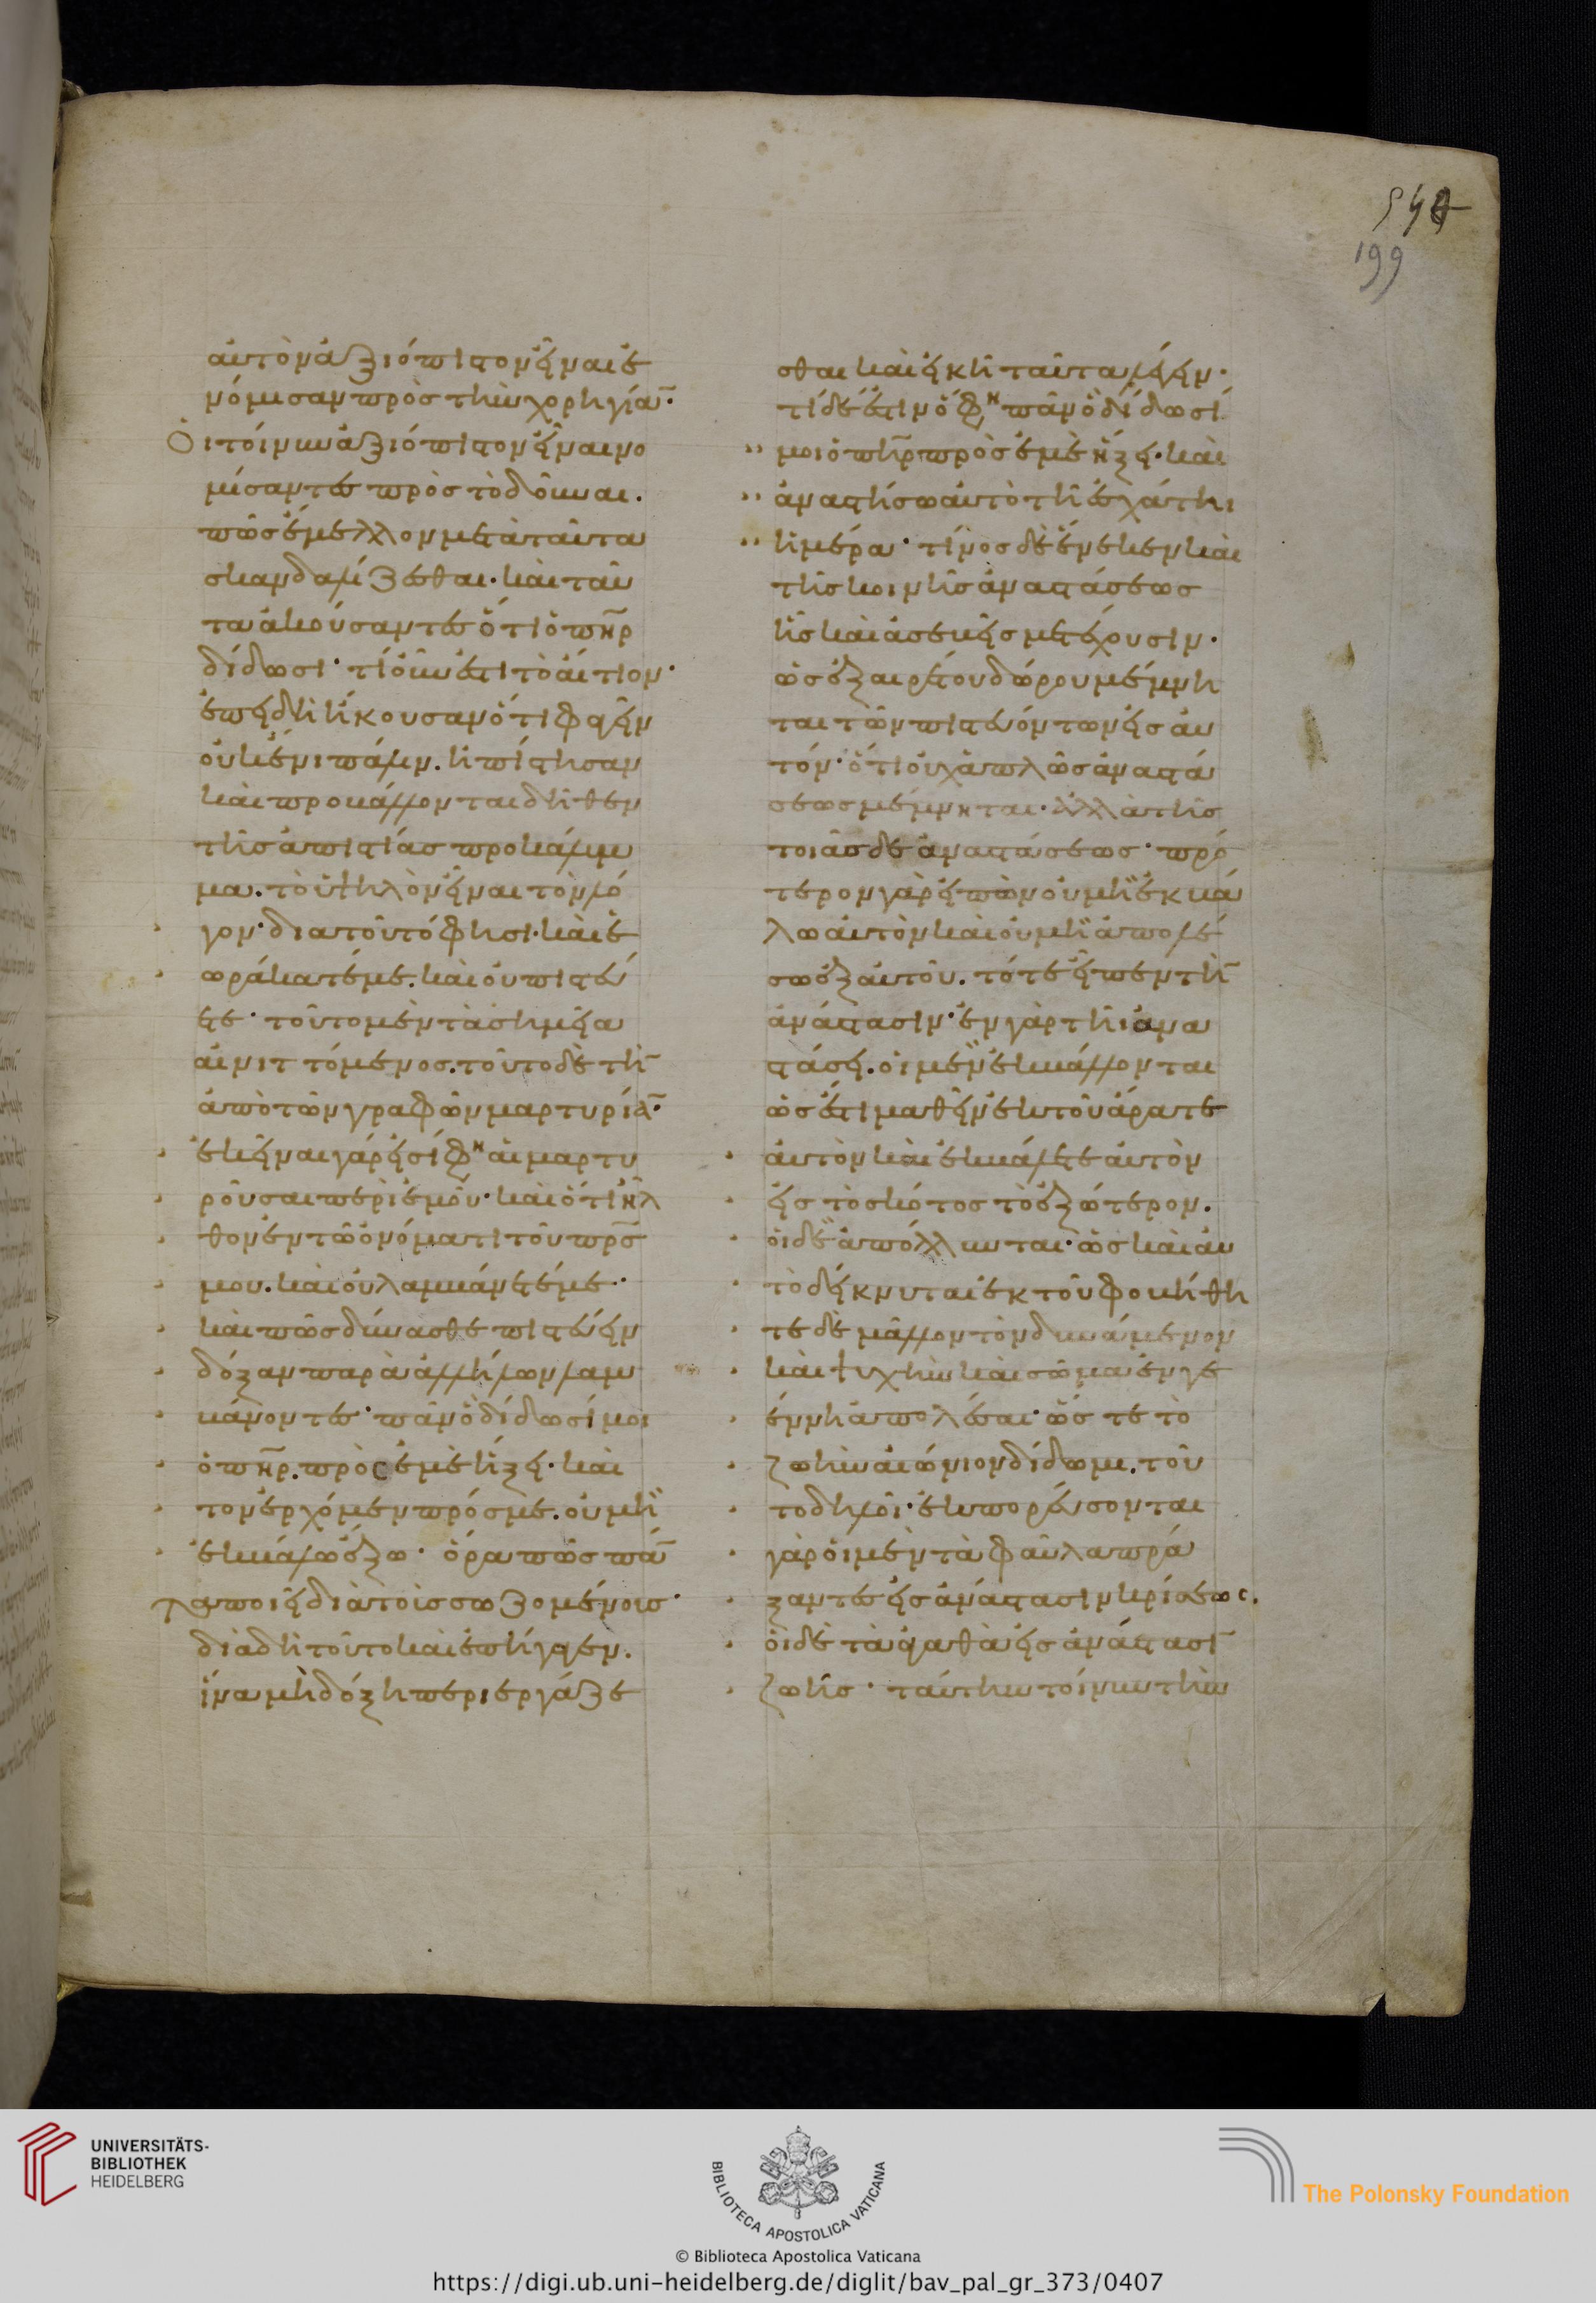 549
199
αὐτὸν ἀξιόπιστον εἶναι ἐ
νόμισαν πρὸς τὴν χορηγίαν·
Οἱ τοίνυν ἀξιόπιστον εἶναι νο
μίσαντες πρὸς τὸ δοῦναι.
πῶς ἔμελλον μετὰ ταῦτα
σκανδαλίζεσθαι· καὶ ταῦ
τα ἀκούσαντες ὅτι ὁ πηρ
δίδωσι· τί οὖν ἐστι τὸ αἴτιον·
ἐπειδὴ ἤκουσαν ὅτι φαγεῖν
οὐκ ἔνι πάλιν. ἠπίστησαν
καὶ προβάλλονται δῆθεν
τῆς ἀπιστίας προκάλυμ
μα. τὸ ὑψηλὸν εἶναι τὸν λό
γον· διατοῦτό φησι· καὶ ἑ
ωράκατέ με. καὶ οὐ πιστεύ
ετε· τοῦτο μὲν τὰ σημεῖα
αἰνιττόμενος. τοῦτο δὲ τὴν
ἀπὸ τῶν γραφῶν μαρτυρίαν·
ἐκεῖναι γάρ εἰσί φη αἱ μαρτυ
ροῦσαι περὶ ἐμοῦ· καὶ ὅτι ἦλ
θον ἐν τῷ ὀνόματι τοῦ πρς
μου. καὶ οὐ λαμβάνετέ με·
καὶ πῶς δύνασθε πιστεύειν
δόξαν παρὰ ἀλλήλων λαμ
βάνοντες· πᾶν ὃ δίδωσί μοι
ὁ πηρ. πρὸς ἐμὲ ἥξει· καὶ
τὸν ἐρχόμενον πρός με. οὐ μὴ
ἐκβάλω ἔξω· ὅρα πῶς πάν
τα ποιεῖ διὰ τοὺς σωζομένους·
διὰ δὴ τοῦτο καὶ ἐπήγαγεν.
ἵνα μὴ δόξη περιεργάζε
σθαι καὶ εἰκῆ ταῦτα λέγειν·
τί δέ ἐστιν ὅ φη πᾶν ὃ δίδωσί
μοι ὁ πηρ πρὸς ἐμὲ ἥξει· καὶ
ἀναστήσω αὐτὸ τῇ ἐσχάτηι
ἡμέρα· τίνος δὲ ἕνεκεν καὶ
τῆς κοινῆς ἀναστάσεως
ἧς καὶ ἀσεβεῖς μετέχουσιν·
ὡς ἐξαιρέτου δώρου μέμνη
ται τῶν πιστευόντων εἰς αὐ
τόν· ὅτι οὐχ ἁπλῶς ἀναστά
σεως μέμνηται· ἀλλὰ τῆς
τοιᾶσδε ἀναστάσεως· πρό
τερον γὰρ εἰπὼν οὐ μὴ ἐκβά
λω αὐτὸν καὶ οὐ μὴ ἀπολέ
σω ἐξ αὐτοῦ. τότε εἶπεν τὴν
ἀνάστασιν· ἐν γὰρ τῆι ἀνα
στάσει. οἱ μὲν ἐκβάλλονται
ὡς ἔστι μαθεῖν ἐκ τοῦ ἄρατε
αὐτὸν καὶ ἐκβάλετε αὐτὸν
εἰς τὸ σκότος τὸ ἐξώτερον.
οἱ δὲ ἀπόλλυνται· ὡς καὶ αὐ
τὸ δείκνυται ἐκ τοῦ φοβήθη
τε δὲ μᾶλλον τὸν δυνάμενον
καὶ ψυχὴν καὶ σῶμα ἐν γε
έννη ἀπολέσαι· ὥστε τὸ
ζωὴν αἰώνιον δίδωμι. τοῦ
το δηλοῖ· ἐκπορεύσονται
γὰρ οἱ μὲν τὰ φαῦλα πρά
ξαντες εἰς ἀνάστασιν κρίσεως.
οἱ δὲ τὰ ἀγαθὰ εἰς ἀνάστασιν
ζωῆς· ταύτην τοίνυν τὴν
UNIVERSITÄTS-
BIBLIOTHEK
HEIDELBERG
BIBLIOTECA APOSTOLICA VATICANA
The Polonsky Foundation
© Biblioteca Apostolica Vaticana
https://digi.ub.uni-heidelberg.de/diglit/bav_pal_gr_373/0407